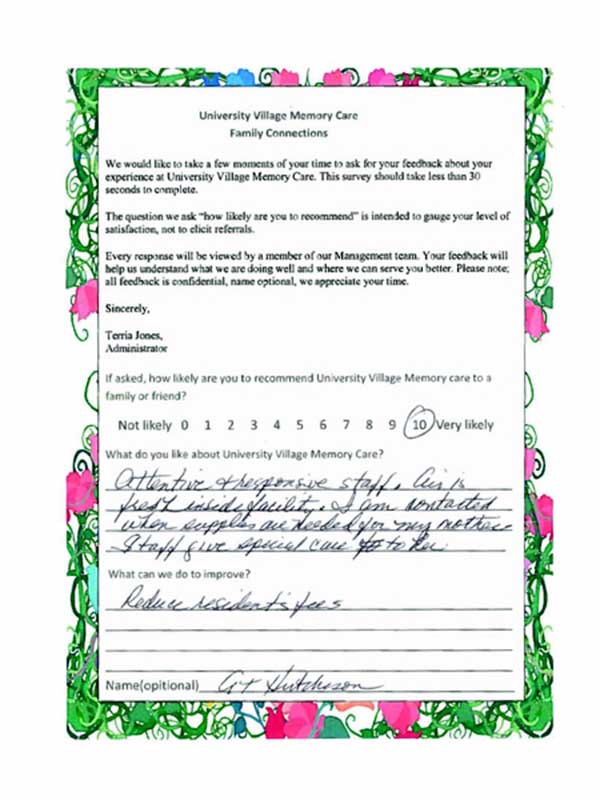 University Village Memory Care
Family Connections
We would like to take a few moments of your time to ask for your feedback about your
experience at University Village Memory Care. This survey should take less than 30
seconds to complete.
The question we ask “how likely are you to recommend” is intended to gauge your level of
satisfaction, not to elicit referrals.
Every response will be viewed by a member of our Management team. Your feedback will
help us understand what we are doing well and where we can serve you better. Please note;
all feedback is confidential, name optional, we appreciate your time.
Sincerely,
Terria Jones,
Administrator
If asked, how likely are you to recommend University Village Memory care to a
family or friend?
Not likely 0 1 2 3 4 5 6 7 8 9 10 Very likely
What do you like about University Village Memory Care?
Attentive & responsive staff. Air is
fresh inside facility. I am contacted
when supplies are needed for my mother.
Staff give special care to her.
What can we do to improve?
Reduce resident's fees
Name(opitional) Hutcheson